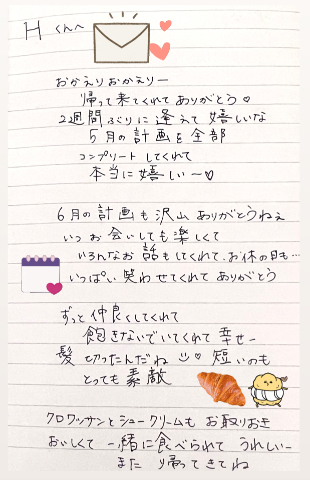 Hくんへ
おかえりおかえりー
帰って来てくれてありがとう♡
2週間ぶりに逢えて嬉しいな
5月の計画を全部
コンプリートしてくれて
本当に嬉しい〜♡
6月の計画も沢山ありがとうねぇ
いつお会いしても楽しくて
いろんなお話もしてくれて、お休の日も…
いっぱい笑わせてくれてありがとう
ずっと仲良くしてくれて
飽きないでいてくれて幸せー
髪切ったんだね ♡ 短いのも
とっても素敵
クロワッサンとシュークリームもお取りおき
おいしくて一緒に食べられてうれしいー
また帰ってきてね